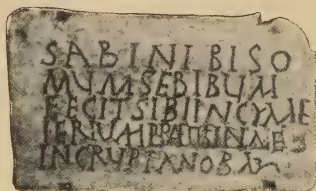 SABINI BISO
MUMSEBIBUM
FECITSIBIINCYME
TERIUM
INCRUPTANOBA